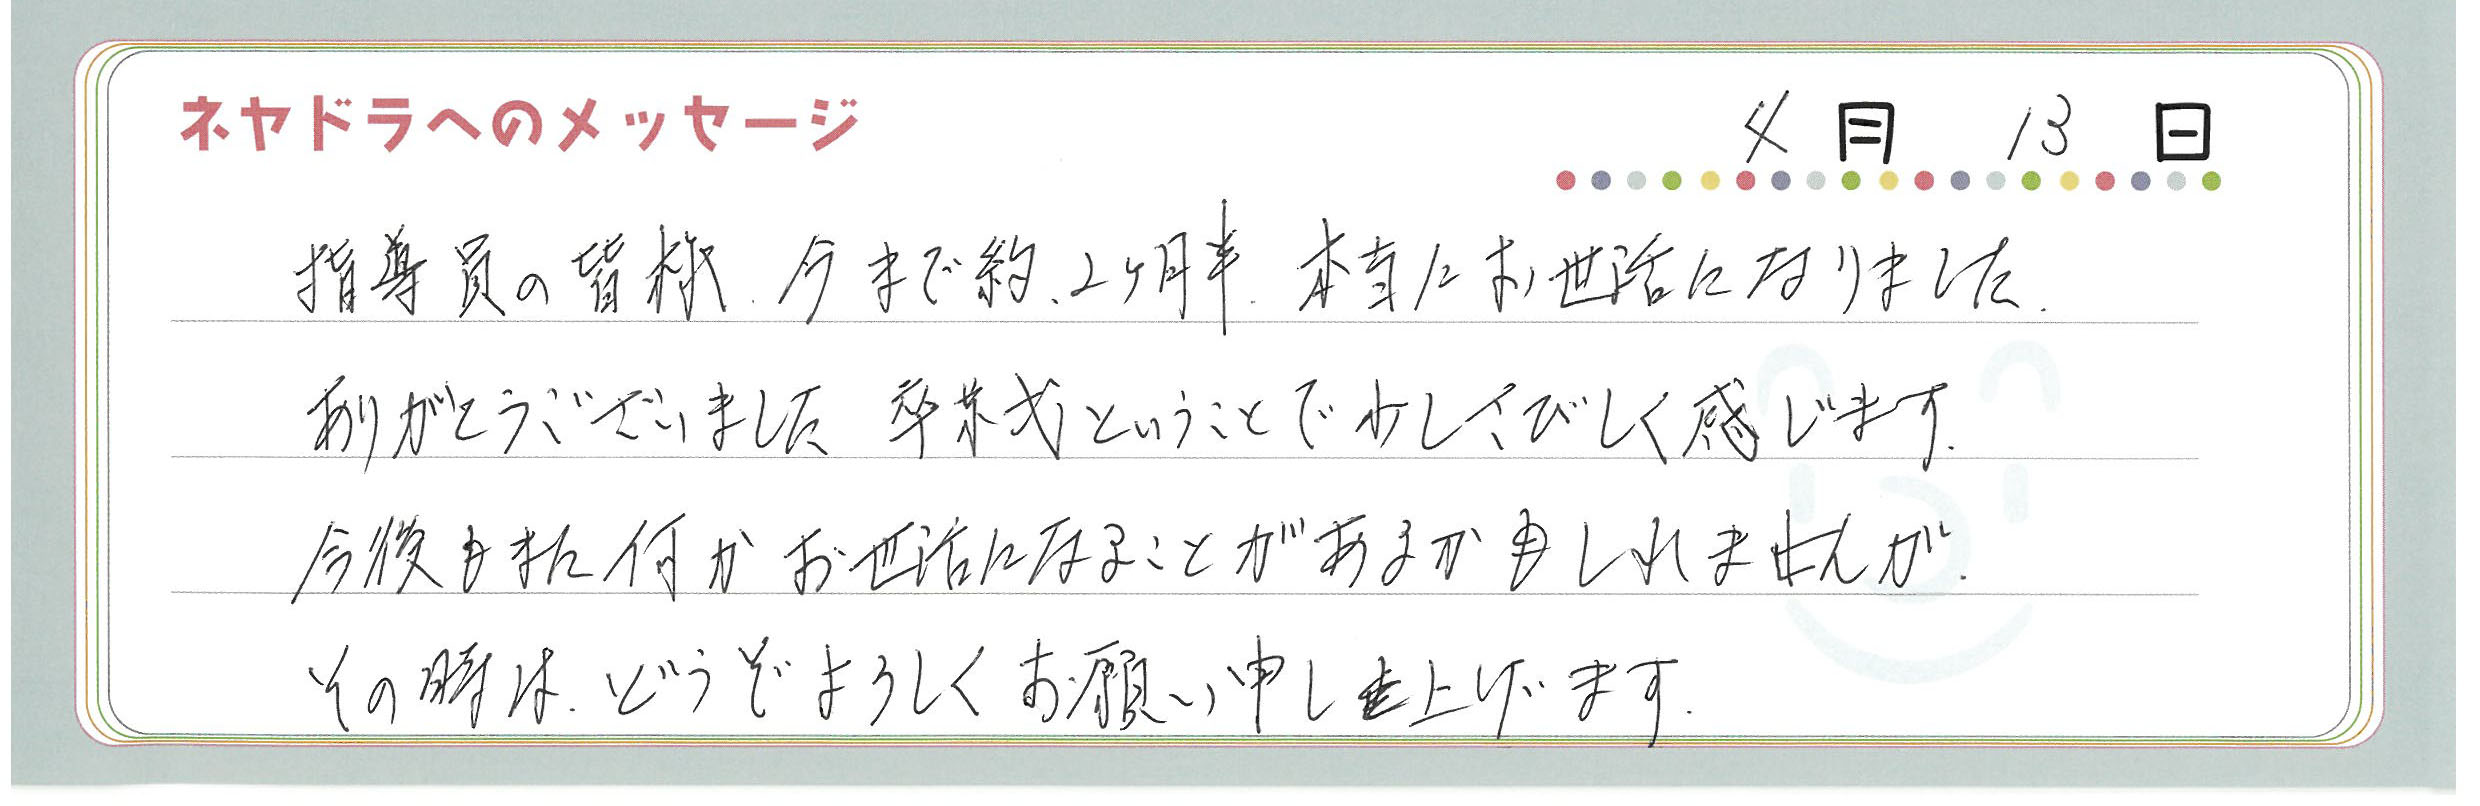 ネヤドラへのメッセージ
4月 13日
指導員の皆様、今まで約、2ヶ月半、本当にお世話になりました.
ありがとうございました 卒業式ということで少しさびしく感じます.
今後もまた何かお世話になることがあるかもしれませんが.
その時は、どうぞよろしくお願い申し上げます.